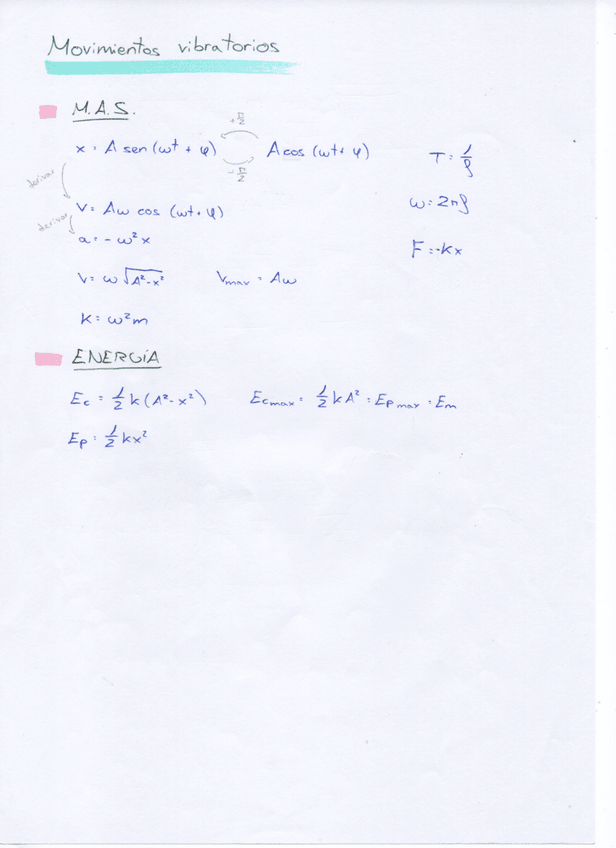 Movimientos vibratorios
M.A.S.
+π/2
x = A sen (ωt + φ) A cos (ωt + φ) T = 1/f
-π/2
derivar
ω = 2πf
V = Aω cos (ωt + φ)
derivar
a = -ω²x F = -kx
V = ω √A²-x² Vmax = Aω
K = ω²m
ENERGÍA
Ec = 1/2 k (A² - x²) Ecmax = 1/2 k A² = Ep max = Em
Ep = 1/2 kx²